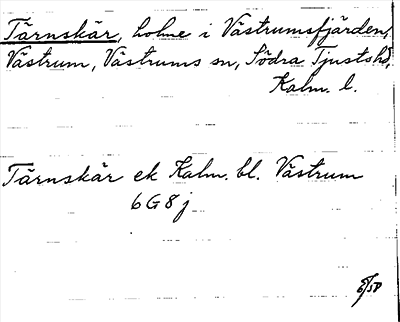 Tärnskär, holme i Västrumsfjärden,
Västrum, Västrums sn, Södra Tjusts hd,
Kalm. l.
Tärnskär ek Kalm. bl. Västrum
6G8j